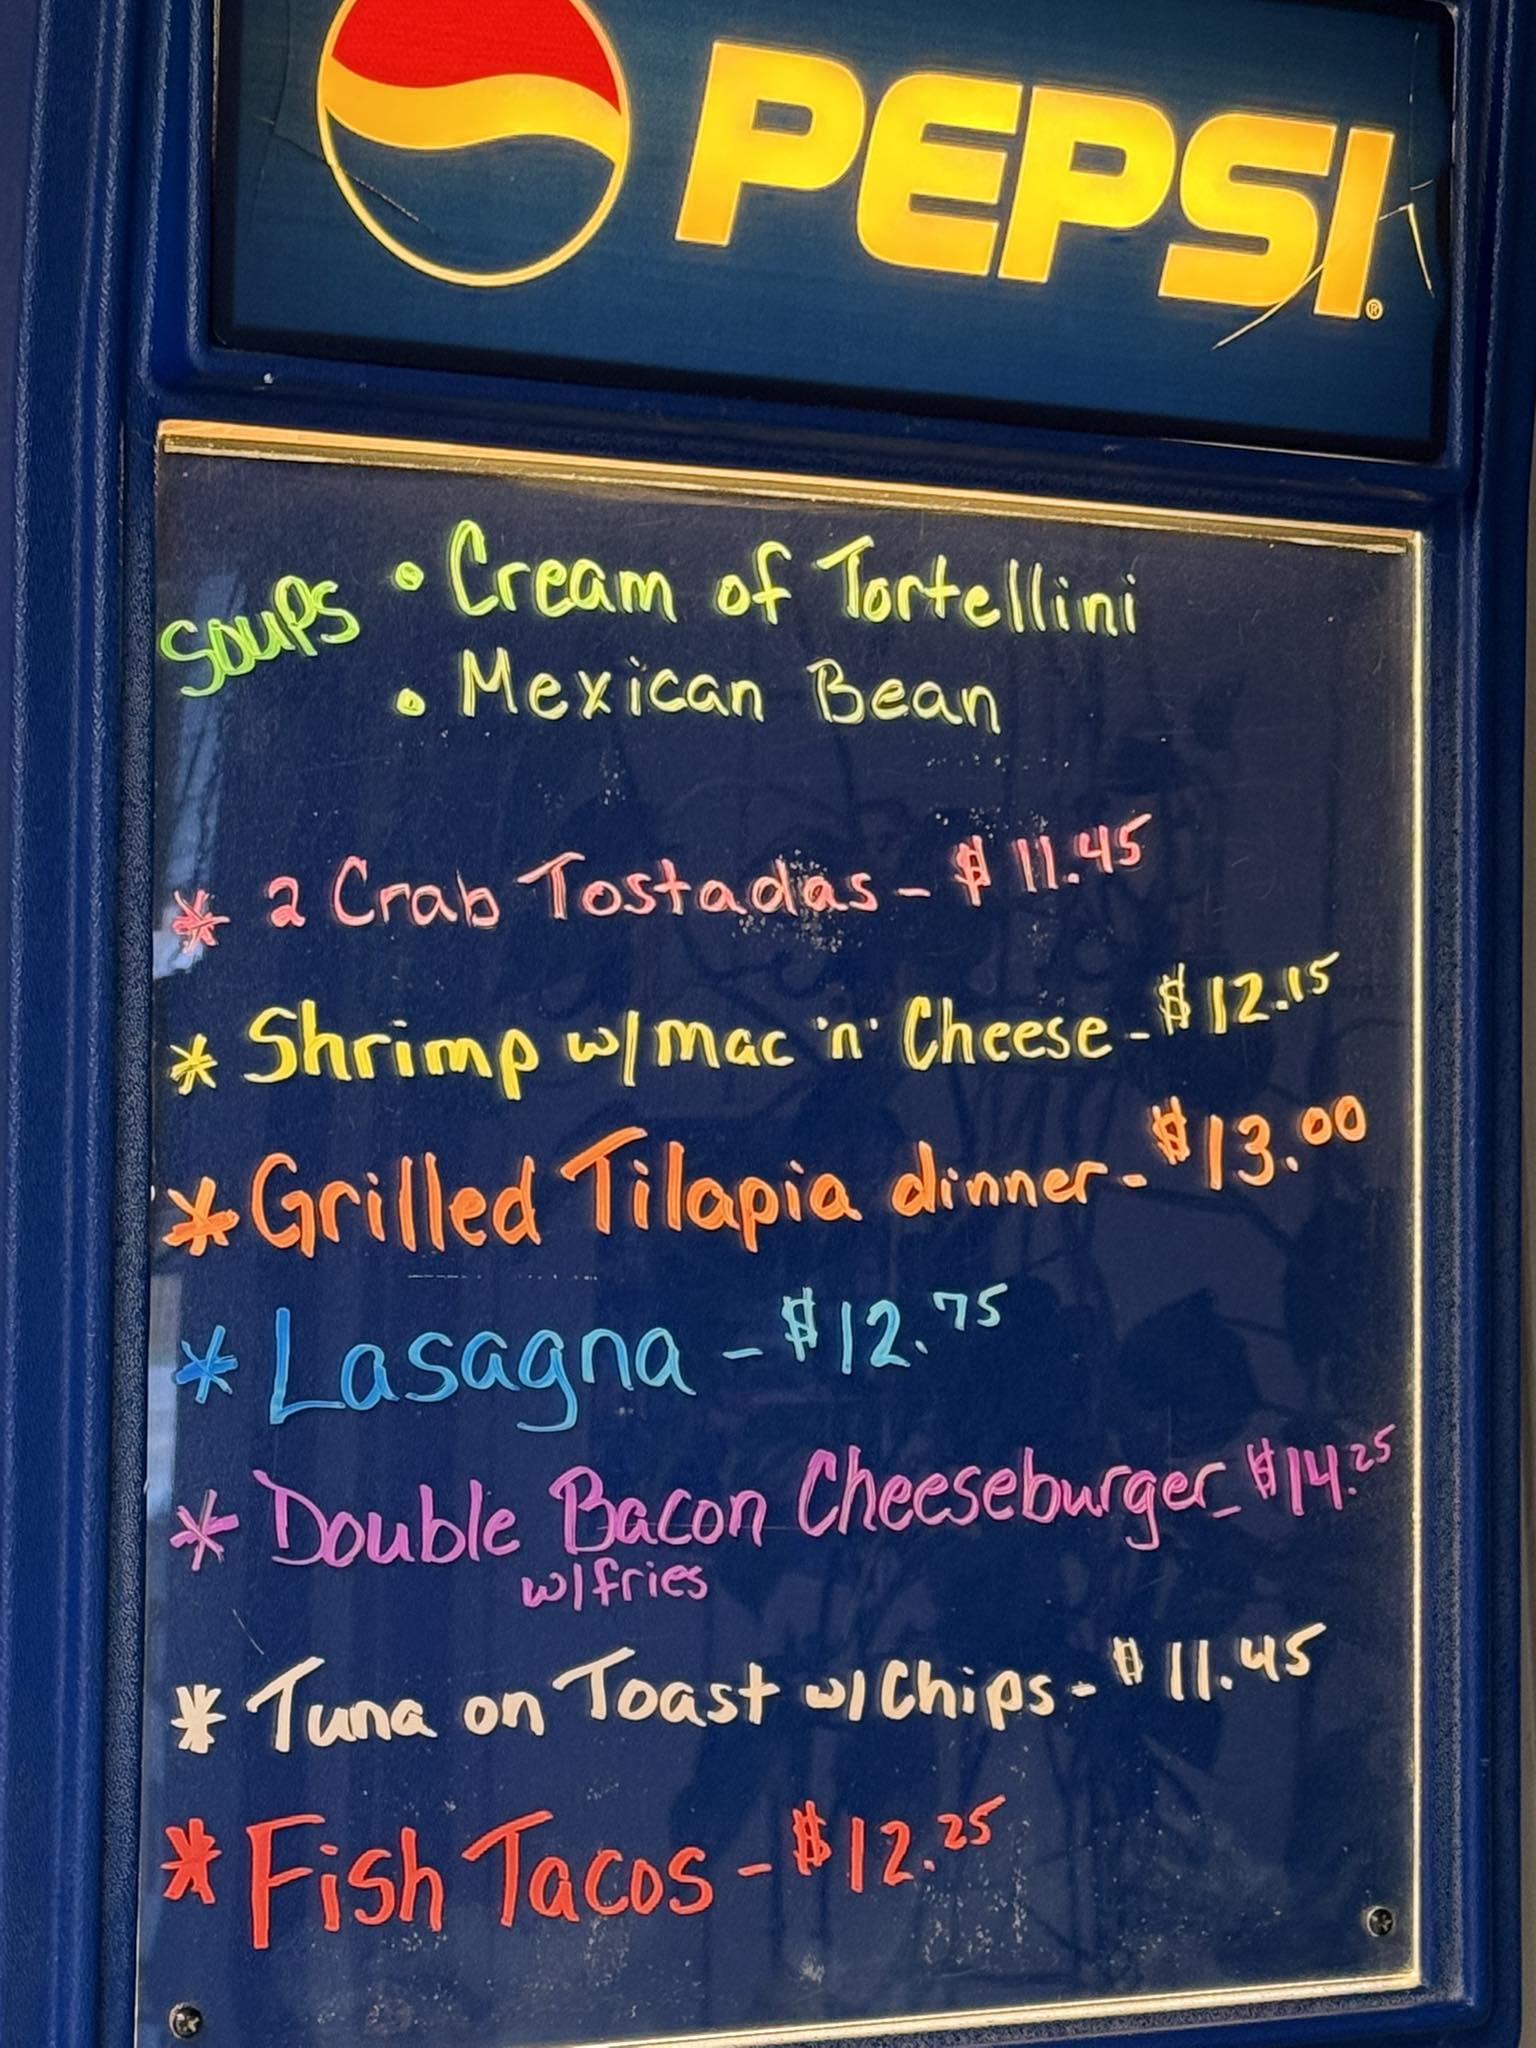 PEPSI®
SOUPS • Cream of Tortellini
• Mexican Bean
* 2 Crab Tostadas - $11.45
* Shrimp w/ mac 'n' Cheese - $12.15
* Grilled Tilapia dinner - $13.00
* Lasagna - $12.75
* Double Bacon Cheeseburger - $14.25
w/fries
* Tuna on Toast w/ Chips - $11.45
* Fish Tacos - $12.25